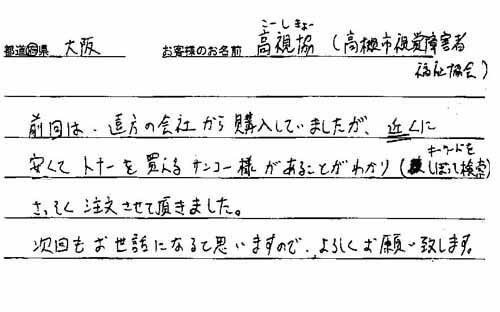 こーしきょー
都道府県 大阪 お客様のお名前 高視協 (高槻市視覚障害者
福祉協会)
前回は、遠方の会社から購入していましたが、近くに
キーワードを
安くてトナーを買えるサンコー様があることがわかり(しぼって検索)
さっそく注文させて頂きました。
次回もお世話になると思いますので、よろしくお願い致します。